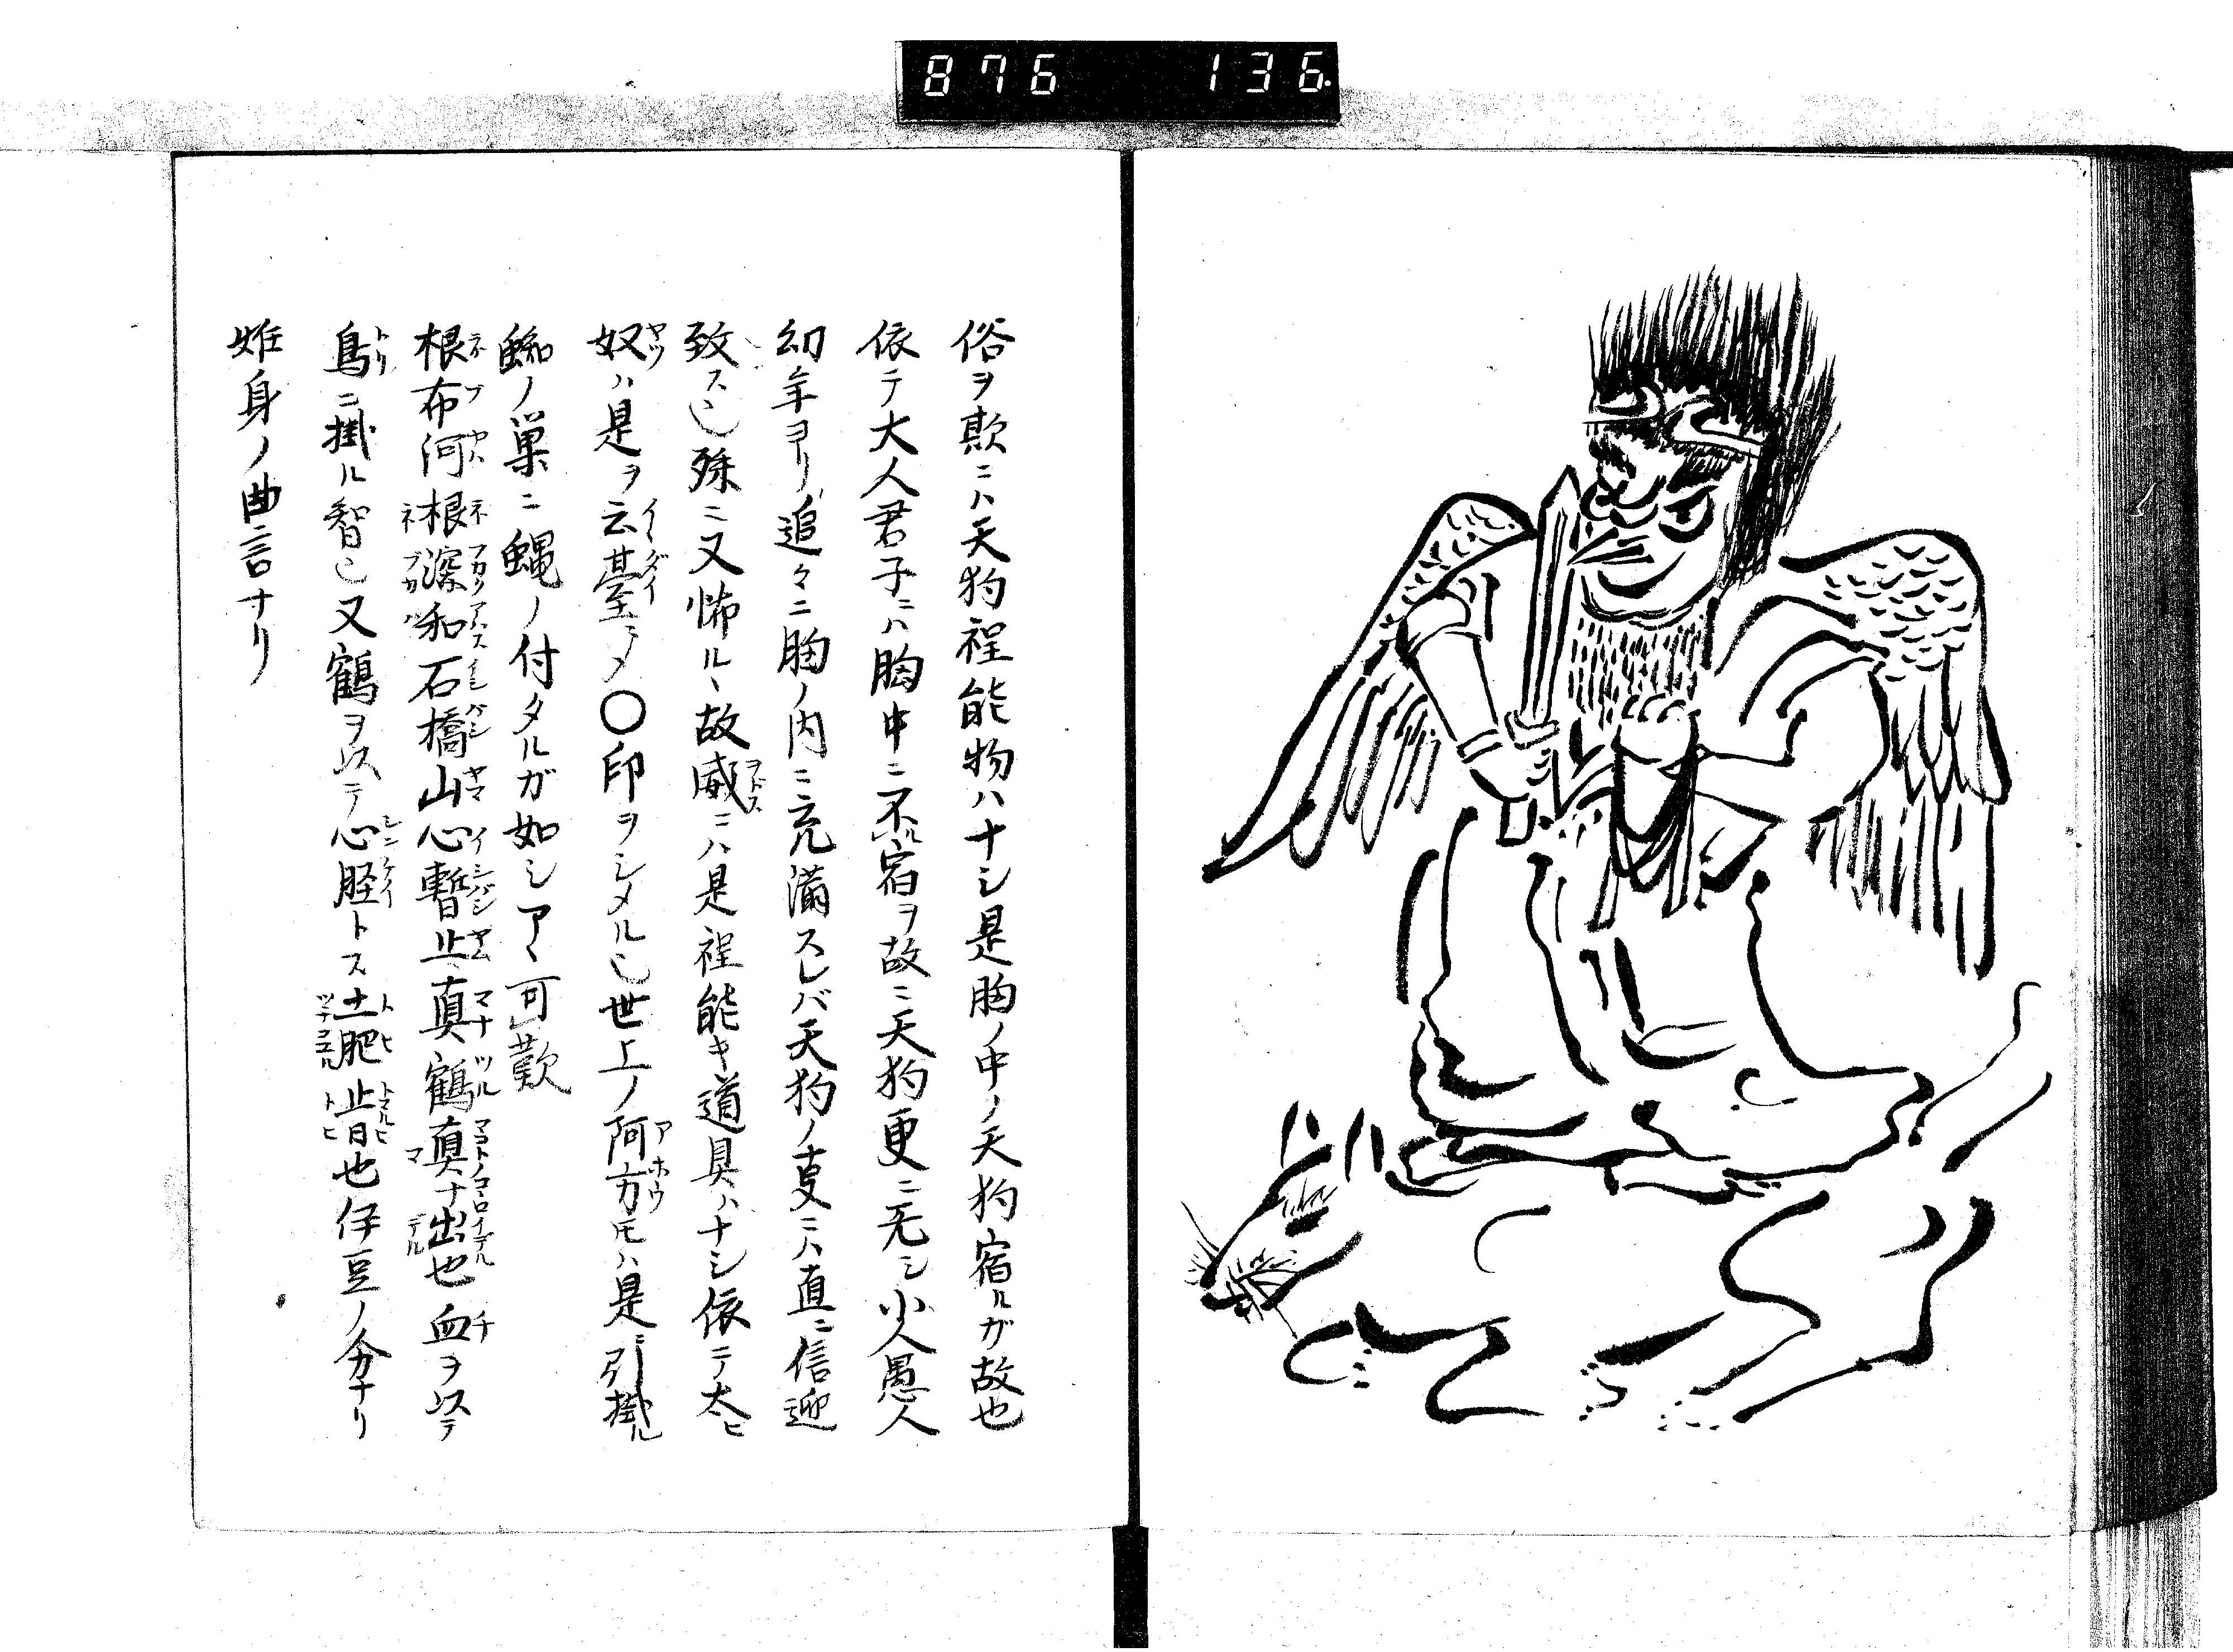 876 136
俗ヲ欺ニハ天狗程能物ハナシ是胸ノ中ノ天狗宿ルガ故也
依テ大人君子ニハ胸中ニ不ル宿ヲ故ニ天狗更ニ无シ小人愚人
幼年ヨリ追々ニ胸ノ内ニ充満スレバ天狗ノ支ニハ直ニ信迎
致ス也殊ニ又怖ルヽ故威ニハ是程能キ道具ハナシ依テ太ヒ
奴ハ是ヲ云臺ニメ〇印ヲシメル也世上ノ阿方モハ是ニ引掛ル
蜘ノ巣ニ蝿ノ付タルガ如シアヽ可歎
根布河根深和石橋山心暫止真鶴真ナ出也血ヲ以テ
鳥ニ掛ル智也又鶴ヲ以テ心胫トス土肥止皆也伊豆ノ分ナリ
姙身ノ曲言ナリ